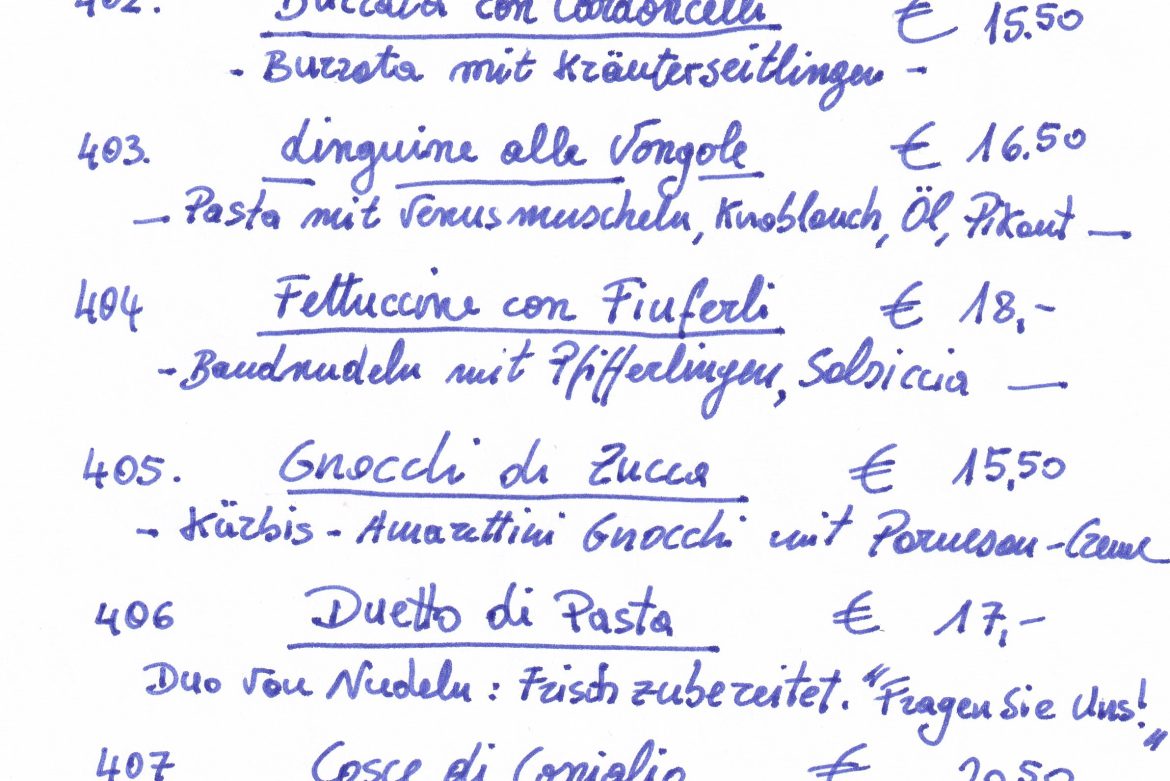 402. Burrata con Cardoncelli € 15.50
- Burrata mit Kräuterseitlingen -
403. Linguine alle Vongole € 16.50
- Pasta mit Venusmuscheln, Knoblauch, Öl, Pikant -
404 Fettuccine con Finferli € 18,-
- Bandnudeln mit Pfifferlingen, Salsiccia -
405. Gnocchi di Zucca € 15,50
- Kürbis - Amarettini Gnocchi mit Parmesan-Creme
406 Duetto di Pasta € 17,-
Duo von Nudeln : Frisch zubereitet. "Fragen Sie Uns!"
407 Cosce di Coniglio € 20.50